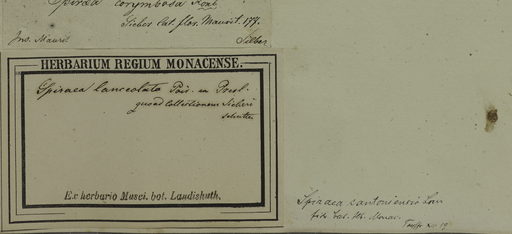 Spiraea corymbosa Roxb
Sieber cat. flor. Maurit. 177.
Ins. Maurit. Sieber
HERBARIUM REGIUM MONACENSE.
Spiraea lanceolata Poir. ex Presl
quoad collectionem Sieberi
Ex herbario Musei. bot. Landishuth.
Spiraea cantoniensis Lour